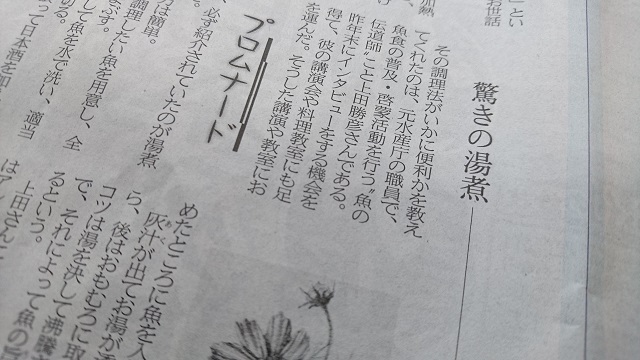 驚きの湯煮
加熱
」とい
お世話
その調理法がいかに便利かを教え
てくれたのは、元水産庁の職員で、
魚食の普及・啓蒙活動を行う“魚の
伝道師”こと上田勝彦さんである。
昨年末にインタビューをする機会を
得て、彼の講演会や料理教室にも足
を運んだ。そうした講演や教室にお
プロムナード
必ず紹介されていたのが湯煮
は簡単。
調理したい魚を用意し、全
まぶす。
魚を水で洗い、適当
って日本酒を
めたところに魚を入
灰汁が出てお湯が
ら、後はおもむろに取
コツは湯を決して沸騰さ
で、それによって魚の旨
るという。
上田さんに
はア